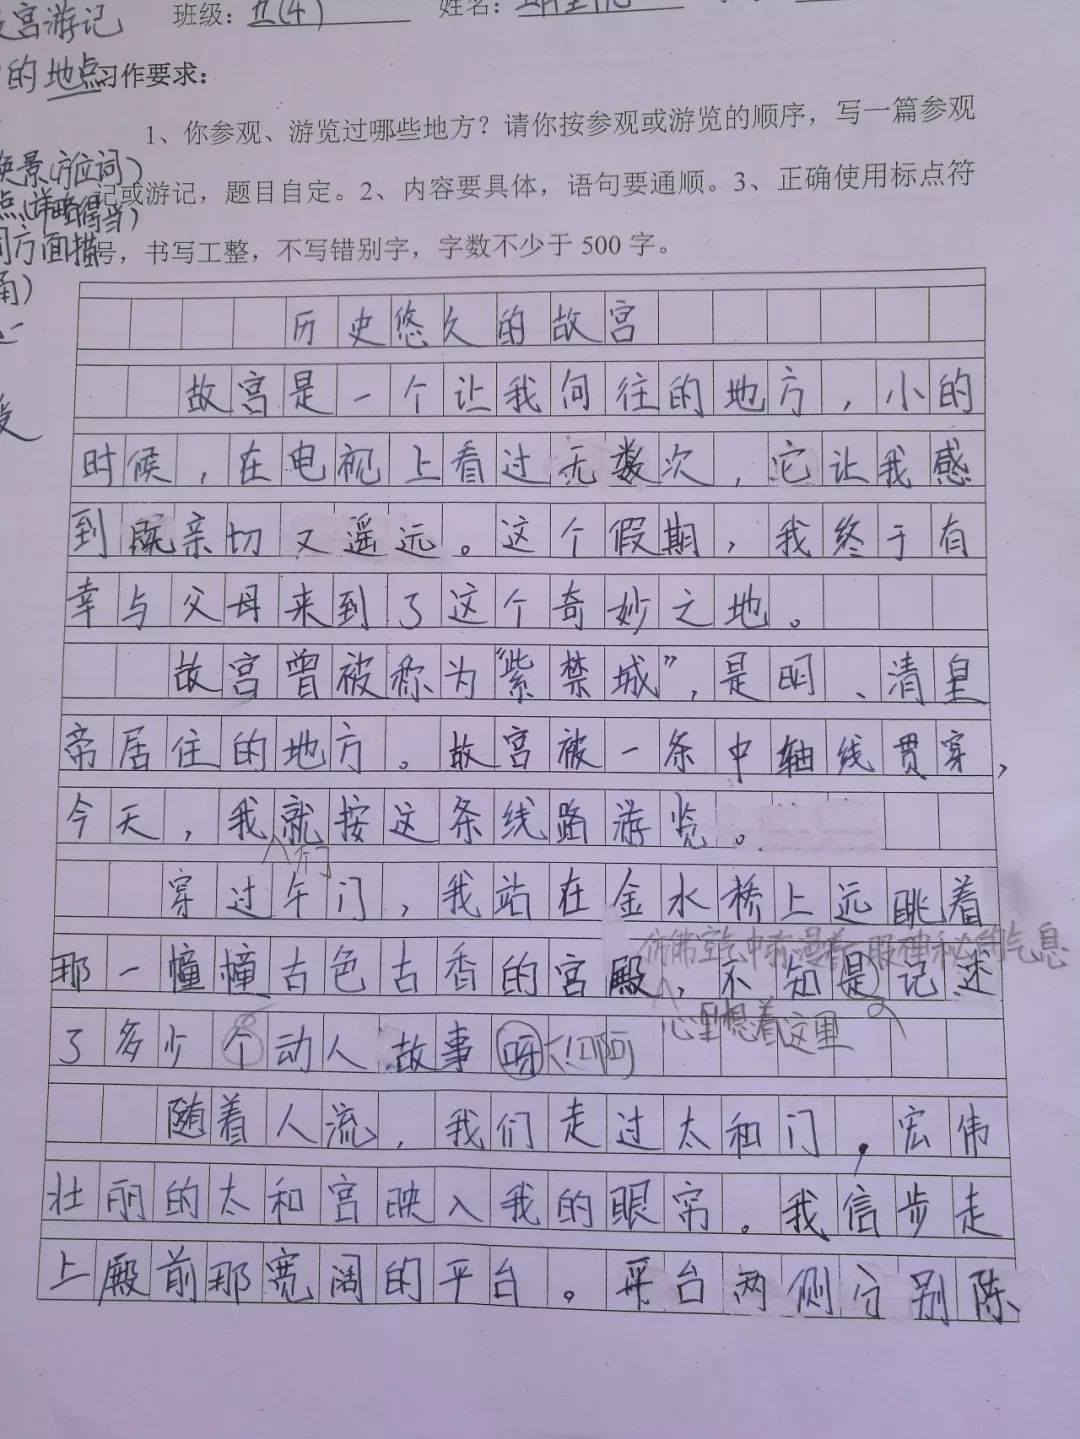 宫游记
班级：五(4)
姓名：
的地点
习作要求：
1、你参观、游览过哪些地方？请你按参观或游览的顺序，写一篇参观
换景(方位词)
记或游记，题目自定。2、内容要具体，语句要通顺。3、正确使用标点符
点(详略得当)
号，书写工整，不写错别字，字数不少于 500 字。
同方面描
历史悠久的故宫
故宫是一个让我向往的地方，小的
时候，在电视上看过无数次，它让我感
到既亲切又遥远。这个假期，我终于有
幸与父母来到了这个奇妙之地。
故宫曾被称为“紫禁城”，是明、清皇
帝居住的地方。故宫被一条中轴线贯穿，
今天，我就按这条线路游览。
们
穿过午门，我站在金水桥上远眺着
仿佛空气中弥漫着一股神秘的气息
那一幢幢古色古香的宫殿，不知是记述
心里想着这里
了多少个动人故事呀！啊
随着人流，我们走过太和门，宏伟
壮丽的太和宫映入我的眼帘。我信步走
上殿前那宽阔的平台。平台两侧分别陈